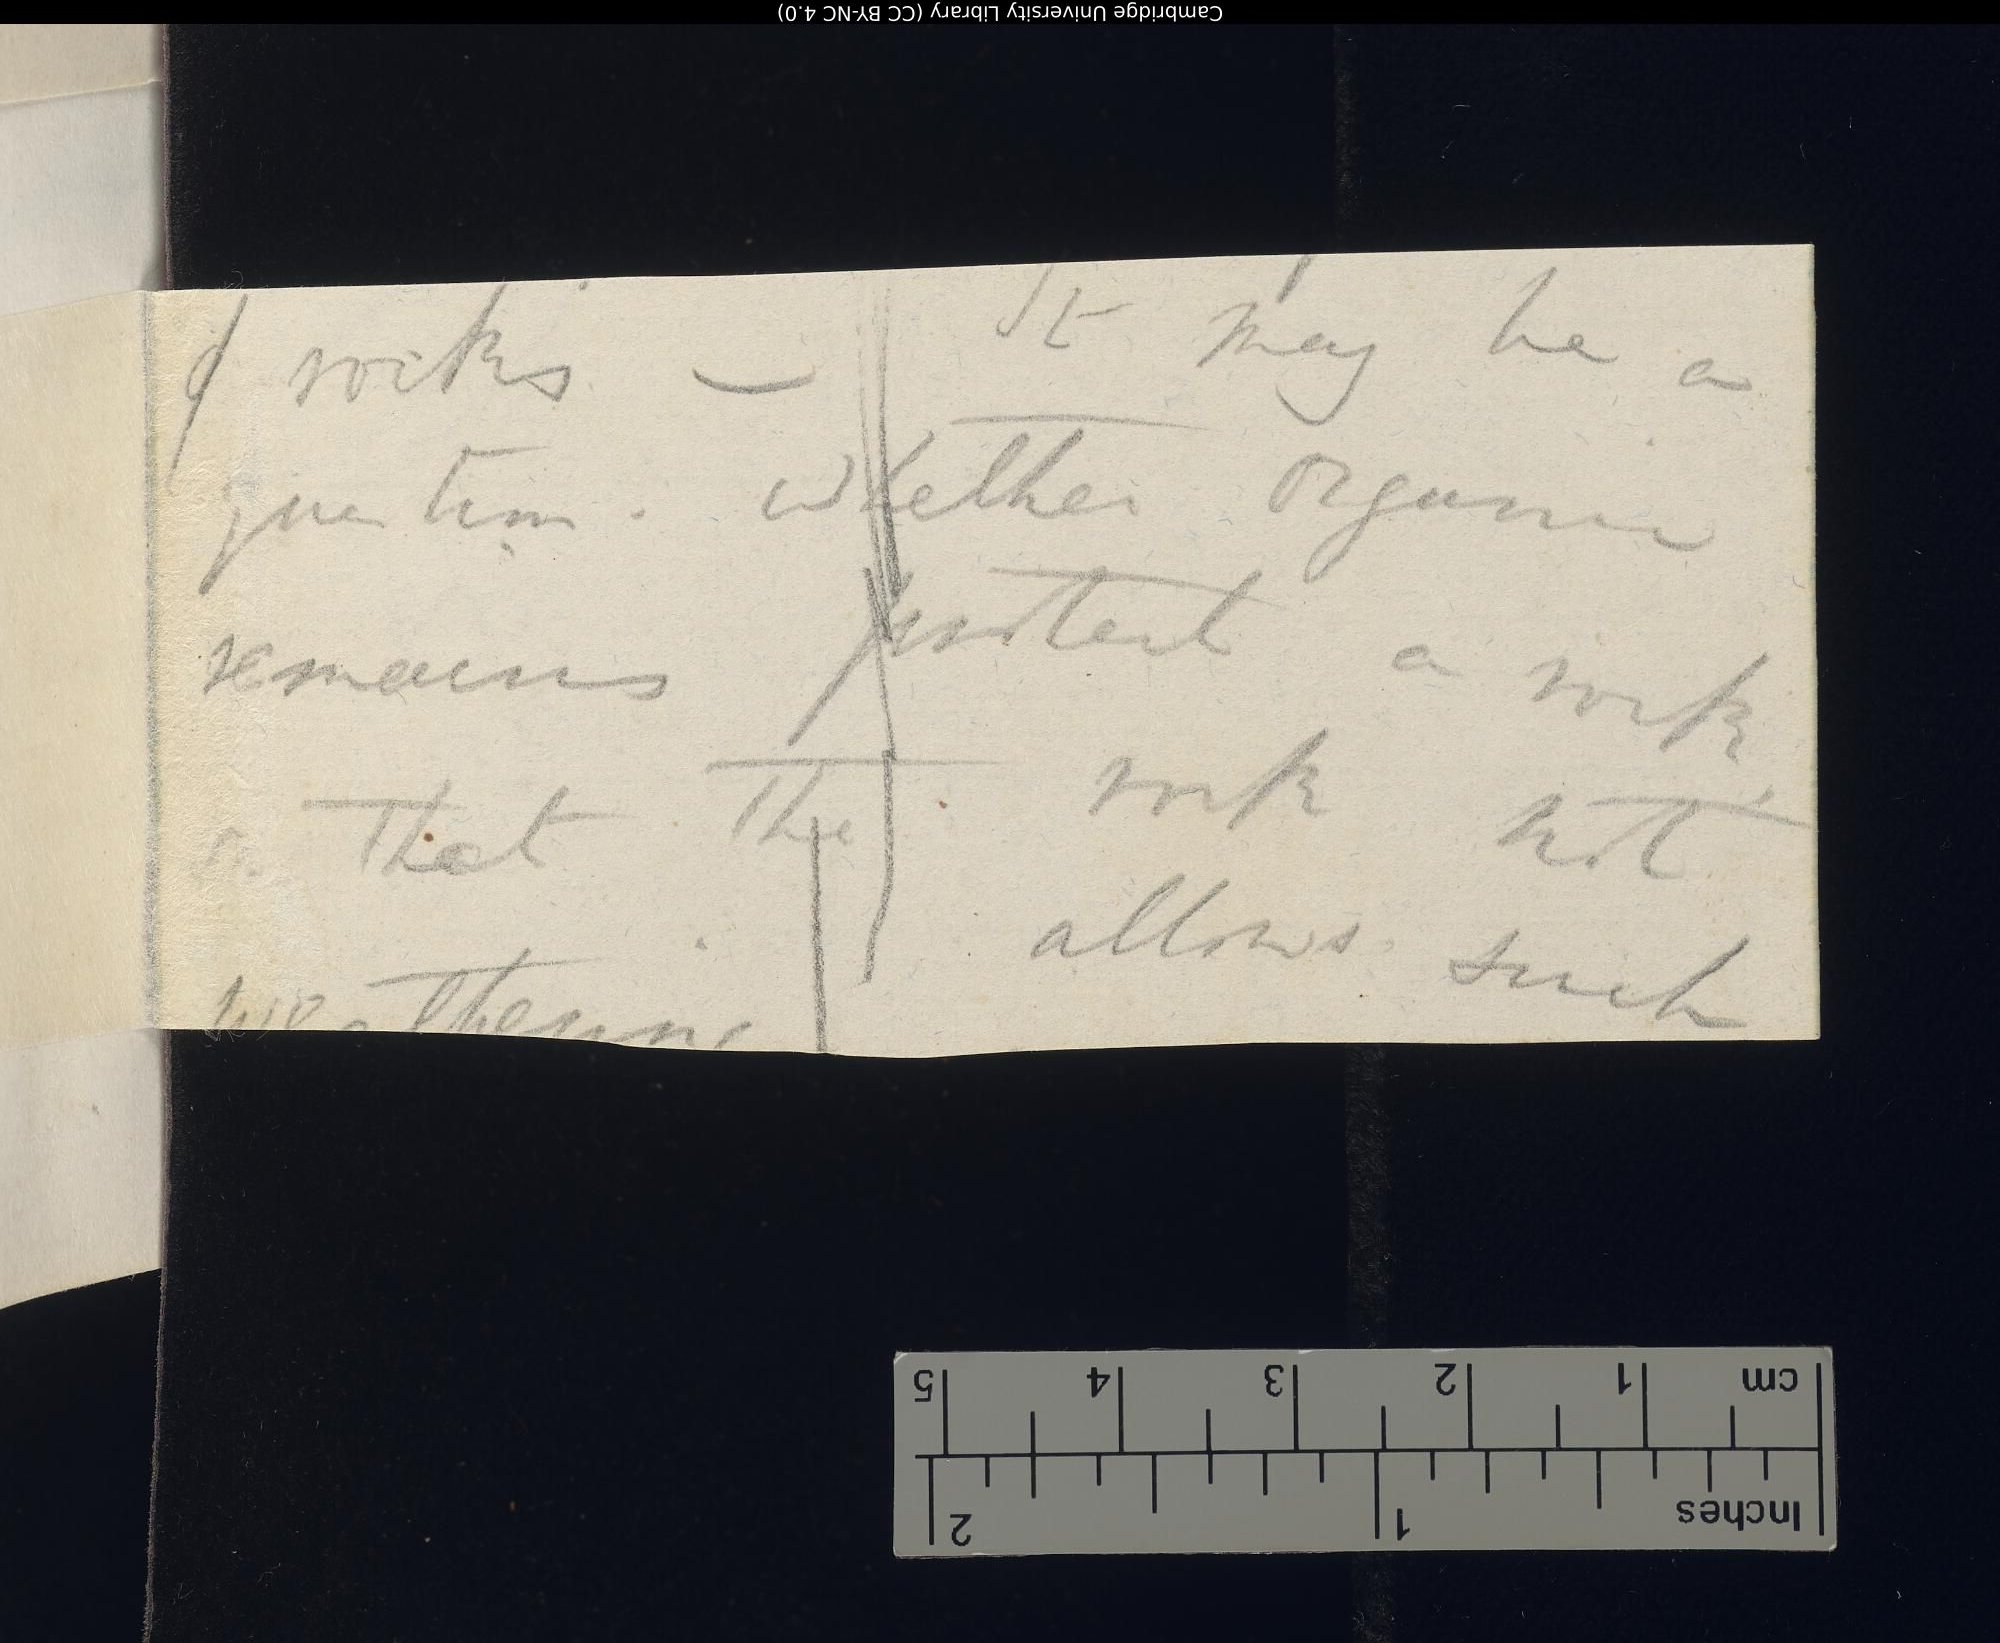 of rocks — It may be a
question. whether organic
remains protect a rock,
or that the rock not
allows such
weathering
Cambridge University Library (CC BY-NC 4.0)
cm 1 2 3 4 5
Inches 1 2